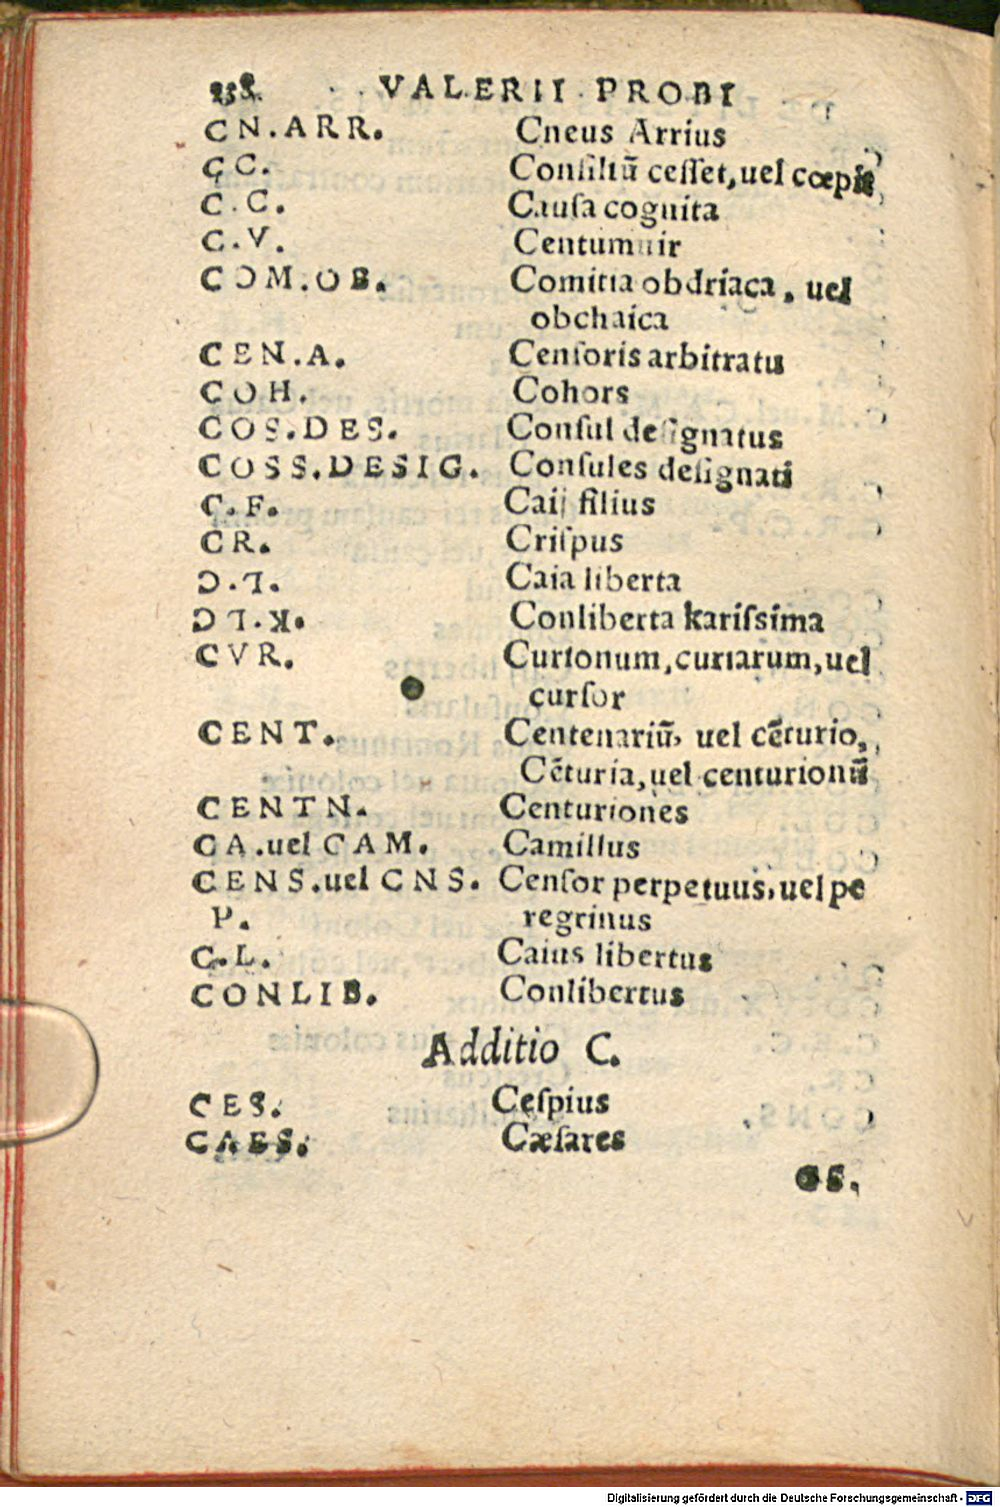 238. VALERII PROBI
CN.ARR. Cneus Arrius
C C. Conſiliū ceſſet, uel cœpit
C.C. Cauſa cognita
C.V. Centumuir
COM.OB. Comitia obdriaca, uel
obchaica
CEN.A. Cenſoris arbitratu
COH. Cohors
COS.DES. Conſul deſignatus
COSS.DESIG. Conſules deſignati
C.F. Caij filius
CR. Criſpus
Ɔ.⅂. Caia liberta
Ɔ⅂.ꓘ. Conliberta kariſsima
CVR. Curionum, curiarum, uel
curſor
CENT. Centenariū, uel cēturio,
Cēturia, uel centurionū
CENTN. Centuriones
CA.uel CAM. Camillus
CENS.uel CNS. Cenſor perpetuus, uel pe
P. regrinus
C.L. Caius libertus
CONLIB. Conlibertus
Additio C.
CES. Ceſpius
CAES. Cæſares
Digitalisierung gefördert durch die Deutsche Forschungsgemeinschaft - DFG